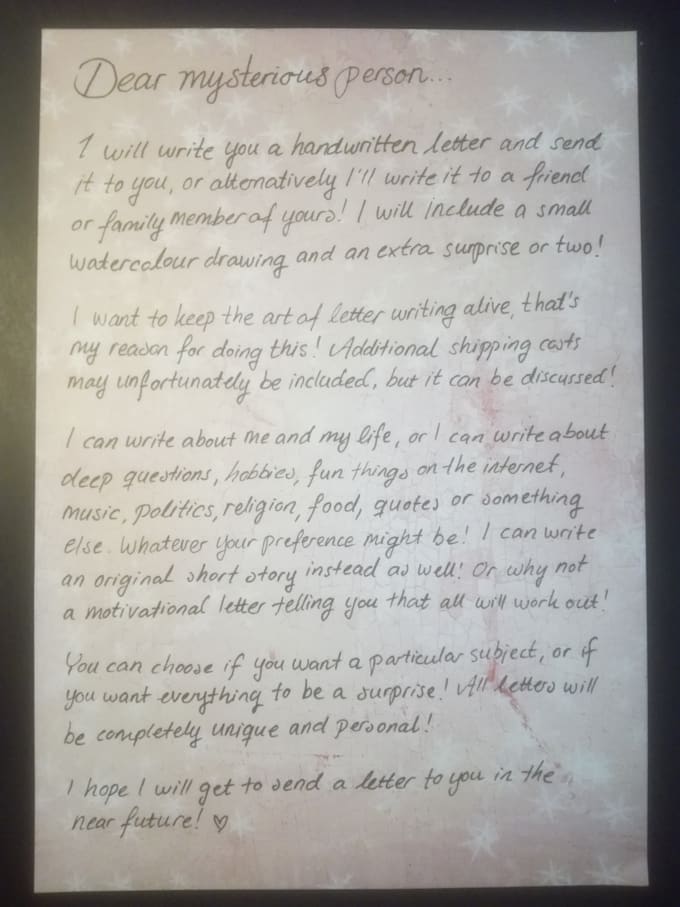 Dear mysterious person...
I will write you a handwritten letter and send
it to you, or alternatively I'll write it to a friend
or family member of yours! I will include a small
watercolour drawing and an extra surprise or two!
I want to keep the art of letter writing alive, that's
my reason for doing this! Additional shipping costs
may unfortunately be included, but it can be discussed!
I can write about me and my life, or I can write about
deep questions, hobbies, fun things on the internet,
music, politics, religion, food, quotes or something
else. Whatever your preference might be! I can write
an original short story instead as well! Or why not
a motivational letter telling you that all will work out!
You can choose if you want a particular subject, or if
you want everything to be a surprise! All letters will
be completely unique and personal!
I hope I will get to send a letter to you in the
near future! ♡